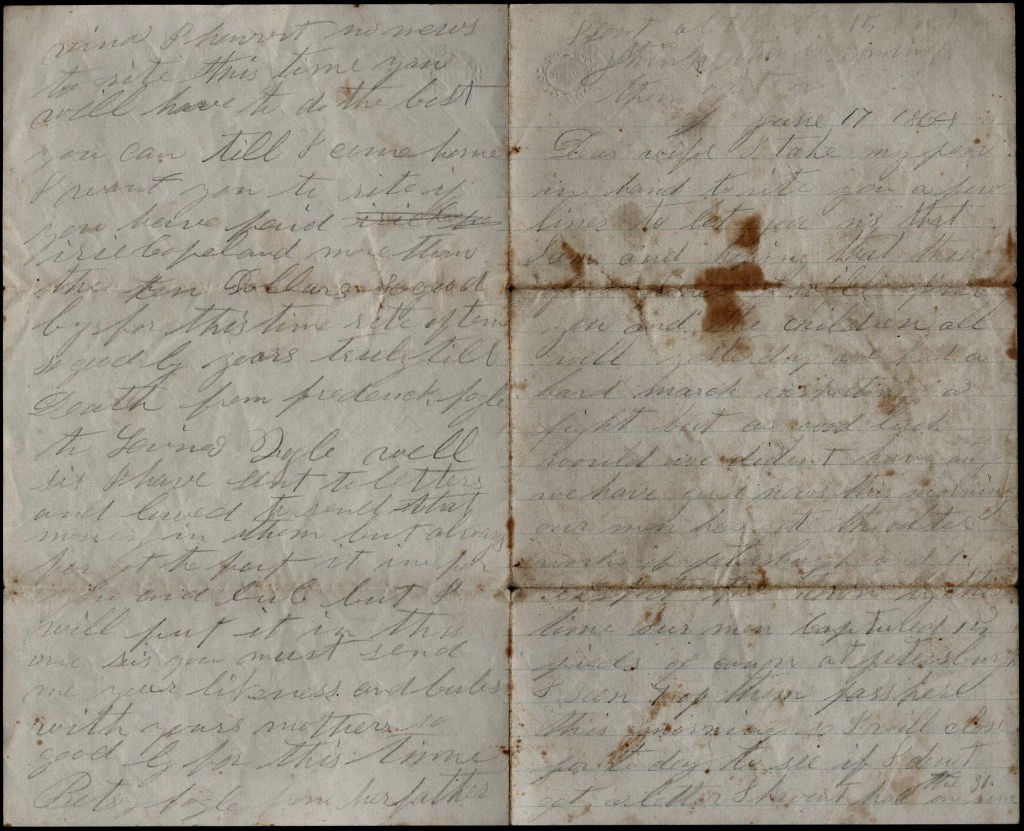 I sent a letter the 15 and
I think this is
then
June 17 1864
Dear wife I take my pen
in hand to rite you a few
lines to let you no that
I am and hoping that these
few lines will find
you and the children all
well yesterday we had a
hard march expecting a
fight but as good luck
would we dident have any
we have good news this morning
our men has got the outer
works of petersburgh and
by this
time our men captured
pieds of canon at petersburg
I seen 4 of them pass here
this morning so I will close
for to day to see if I dont
get a letter I havent had one since
the 31
vina I havent no news
to rite this time you
will have to do the best
you can till I come home
I want you to rite if
you have paid
irie Copeland more than
the ten Dollars so good
by for this time rite often
so good by yours truly till
Death from frederick fogle
to Levina Fogle well
sis I have sent to letters
and lowed to send that
money in them but always
forgot to put it in for
you and bub but I
will put it in this
one sis you must send
me your likeness and bubs
with yours mothers so
good by for this time
Betsy fogle from her father